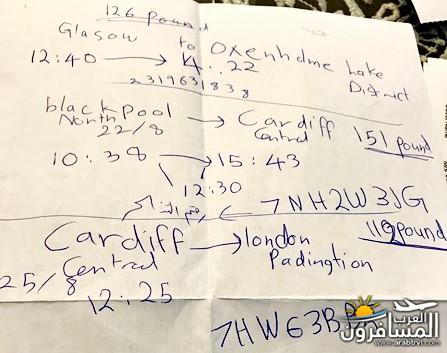 126 pound
Glasow to Oxenholme Lake District
12:40 → 4..22
2319631838
blackpool North → Cardiff Central 151 pound
22/8
10:38 → 15:43
12:30
رقم التذاكر ← 7NH2W3JG
Cardiff Central → london Padingtion 119 pound
25/8
12:25
7HW63B
العرب المسافرون
www.arabtrvl.com